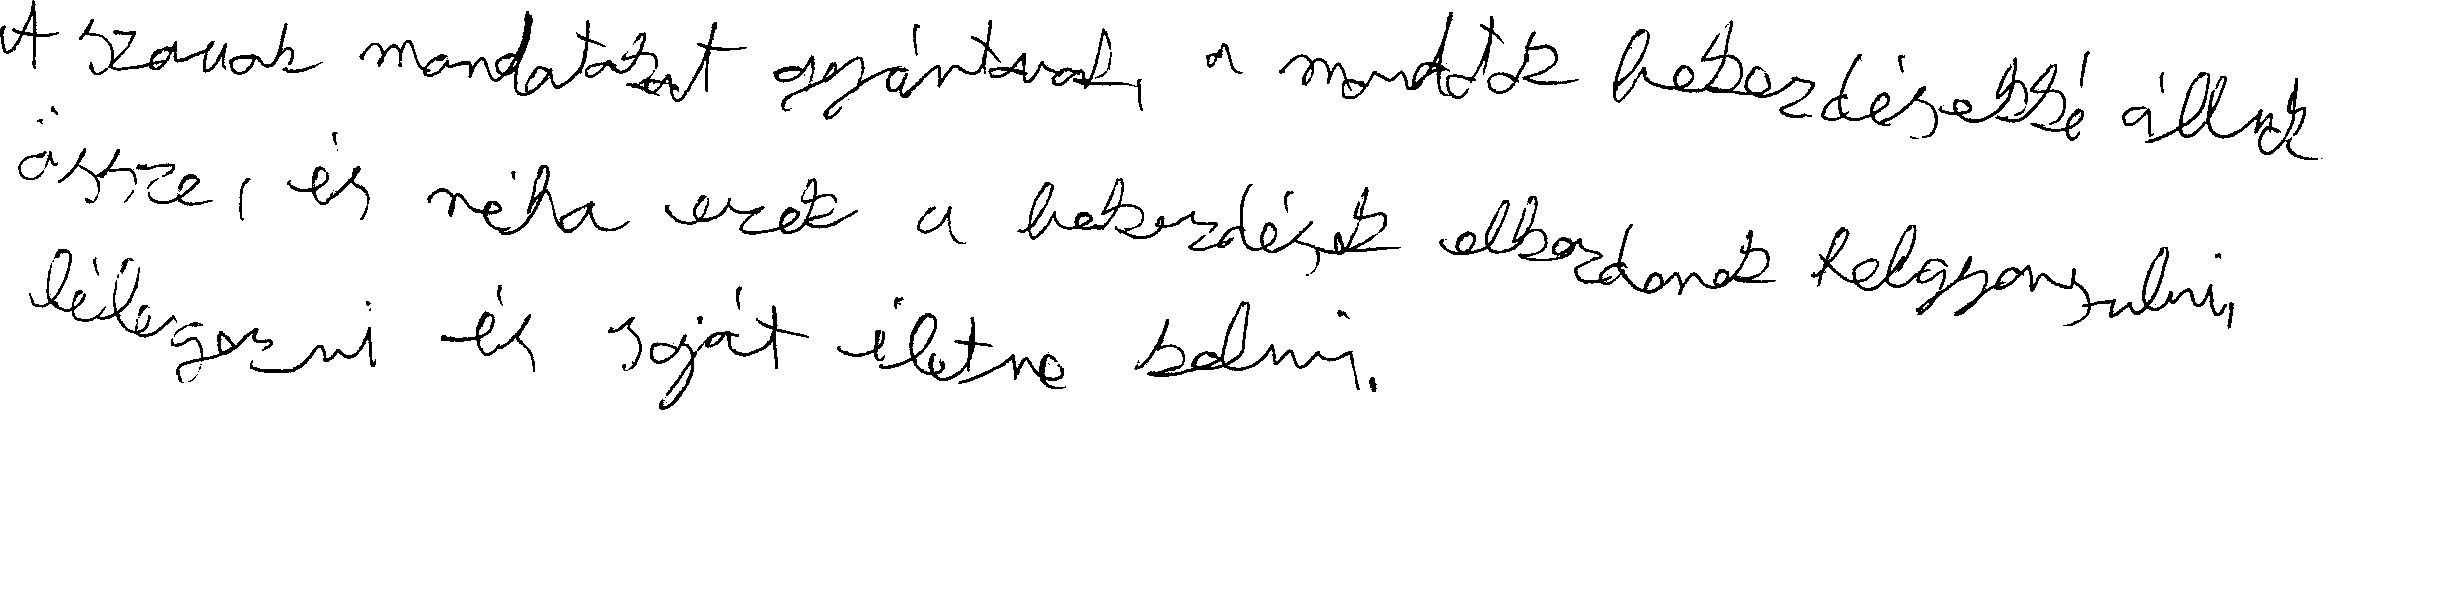 A szavak mondatokat gyártanak, a mondatok bekezdésekké állnak
össze, és néha ezek a bekezdések elkezdenek felgyorsulni,
lélegezni és saját életre kelni.